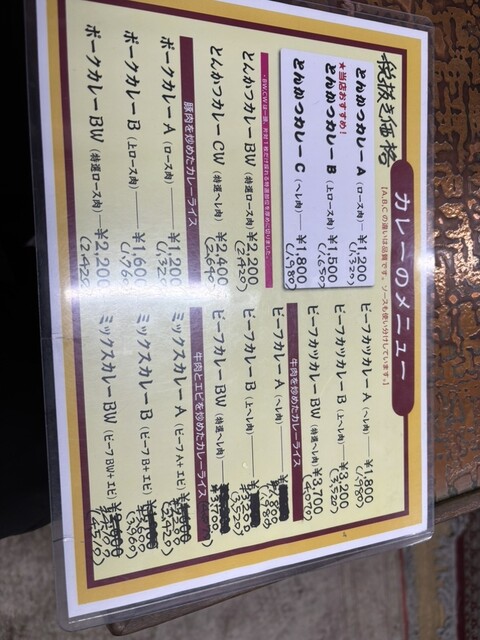 税抜き価格
カレーのメニュー
【A,B,Cの違いは品質です。ソースも使い分けしています。】
とんかつカレー A (ロース肉) ¥1,200
(1,320)
★当店おすすめ!
とんかつカレー B (上ロース肉) ¥1,500
(1,650)
とんかつカレー C (ヘレ肉) ¥1,800
(1,980)
とんかつカレー BW (特選ロース肉) ¥2,200
(2,420)
とんかつカレー CW (特選ヘレ肉) ¥2,400
(2,640)
豚肉を炒めたカレーライス
ポークカレー A (ロース肉) ¥1,200
(1,320)
ポークカレー B (上ロース肉) ¥1,600
(1,760)
ポークカレー BW (特選ロース肉) ¥2,200
(2,420)
ビーフカツカレー A (ヘレ肉) ¥1,800
(1,980)
ビーフカツカレー B (上ヘレ肉) ¥3,200
(3,520)
ビーフカツカレー BW (特選ヘレ肉) ¥3,700
(4,070)
牛肉を炒めたカレーライス
ビーフカレー A (ヘレ肉)
¥1,800
ビーフカレー B (上ヘレ肉)
¥3,200
(3,520)
ビーフカレー BW (特選ヘレ肉)
¥3,700
牛肉とエビを炒めたカレーライス
ミックスカレー A (ビーフA+エビ)
(2,420)
ミックスカレー B (ビーフB+エビ)
(3,960)
ミックスカレー BW (ビーフBW+エビ)
(4,510)